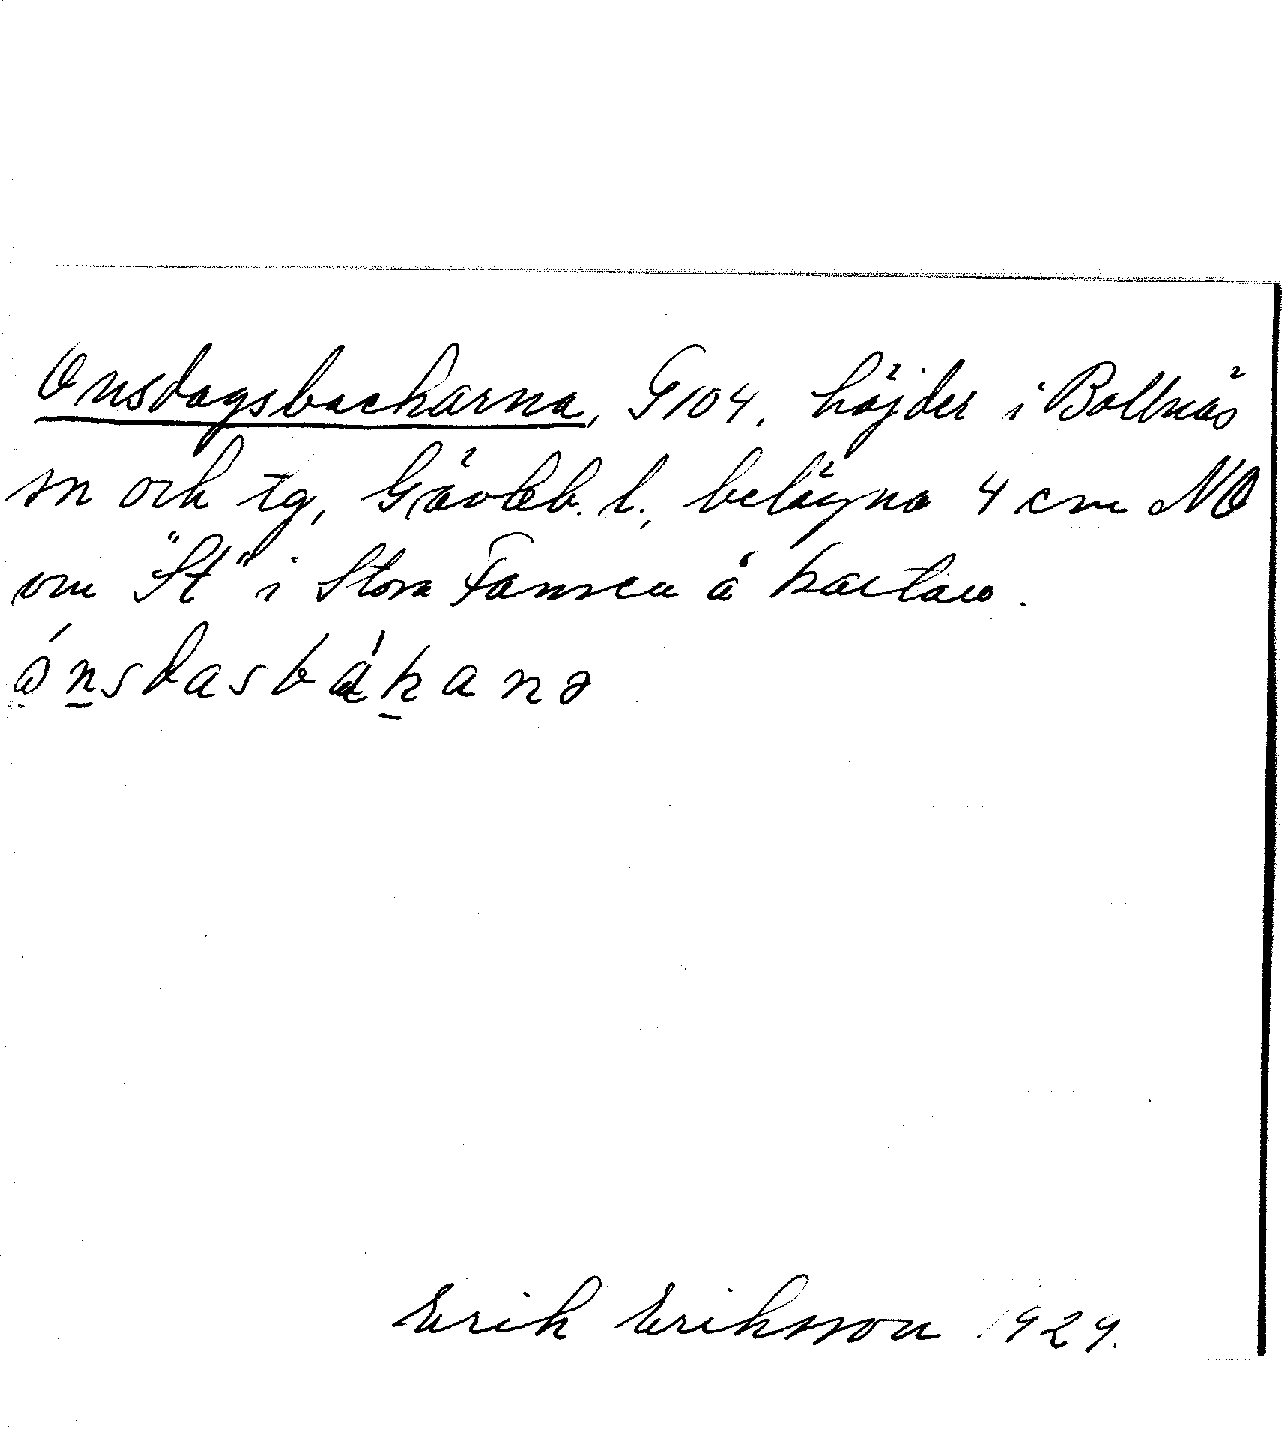 Onsdagsbackarna, G104. höjder i Bollnäs
sn och tg, Gävleb. l., belägna 4 cm NO
om "St" i Stora Fansen å kartan.
ónsdasbákanə
Erik Eriksson 1929.